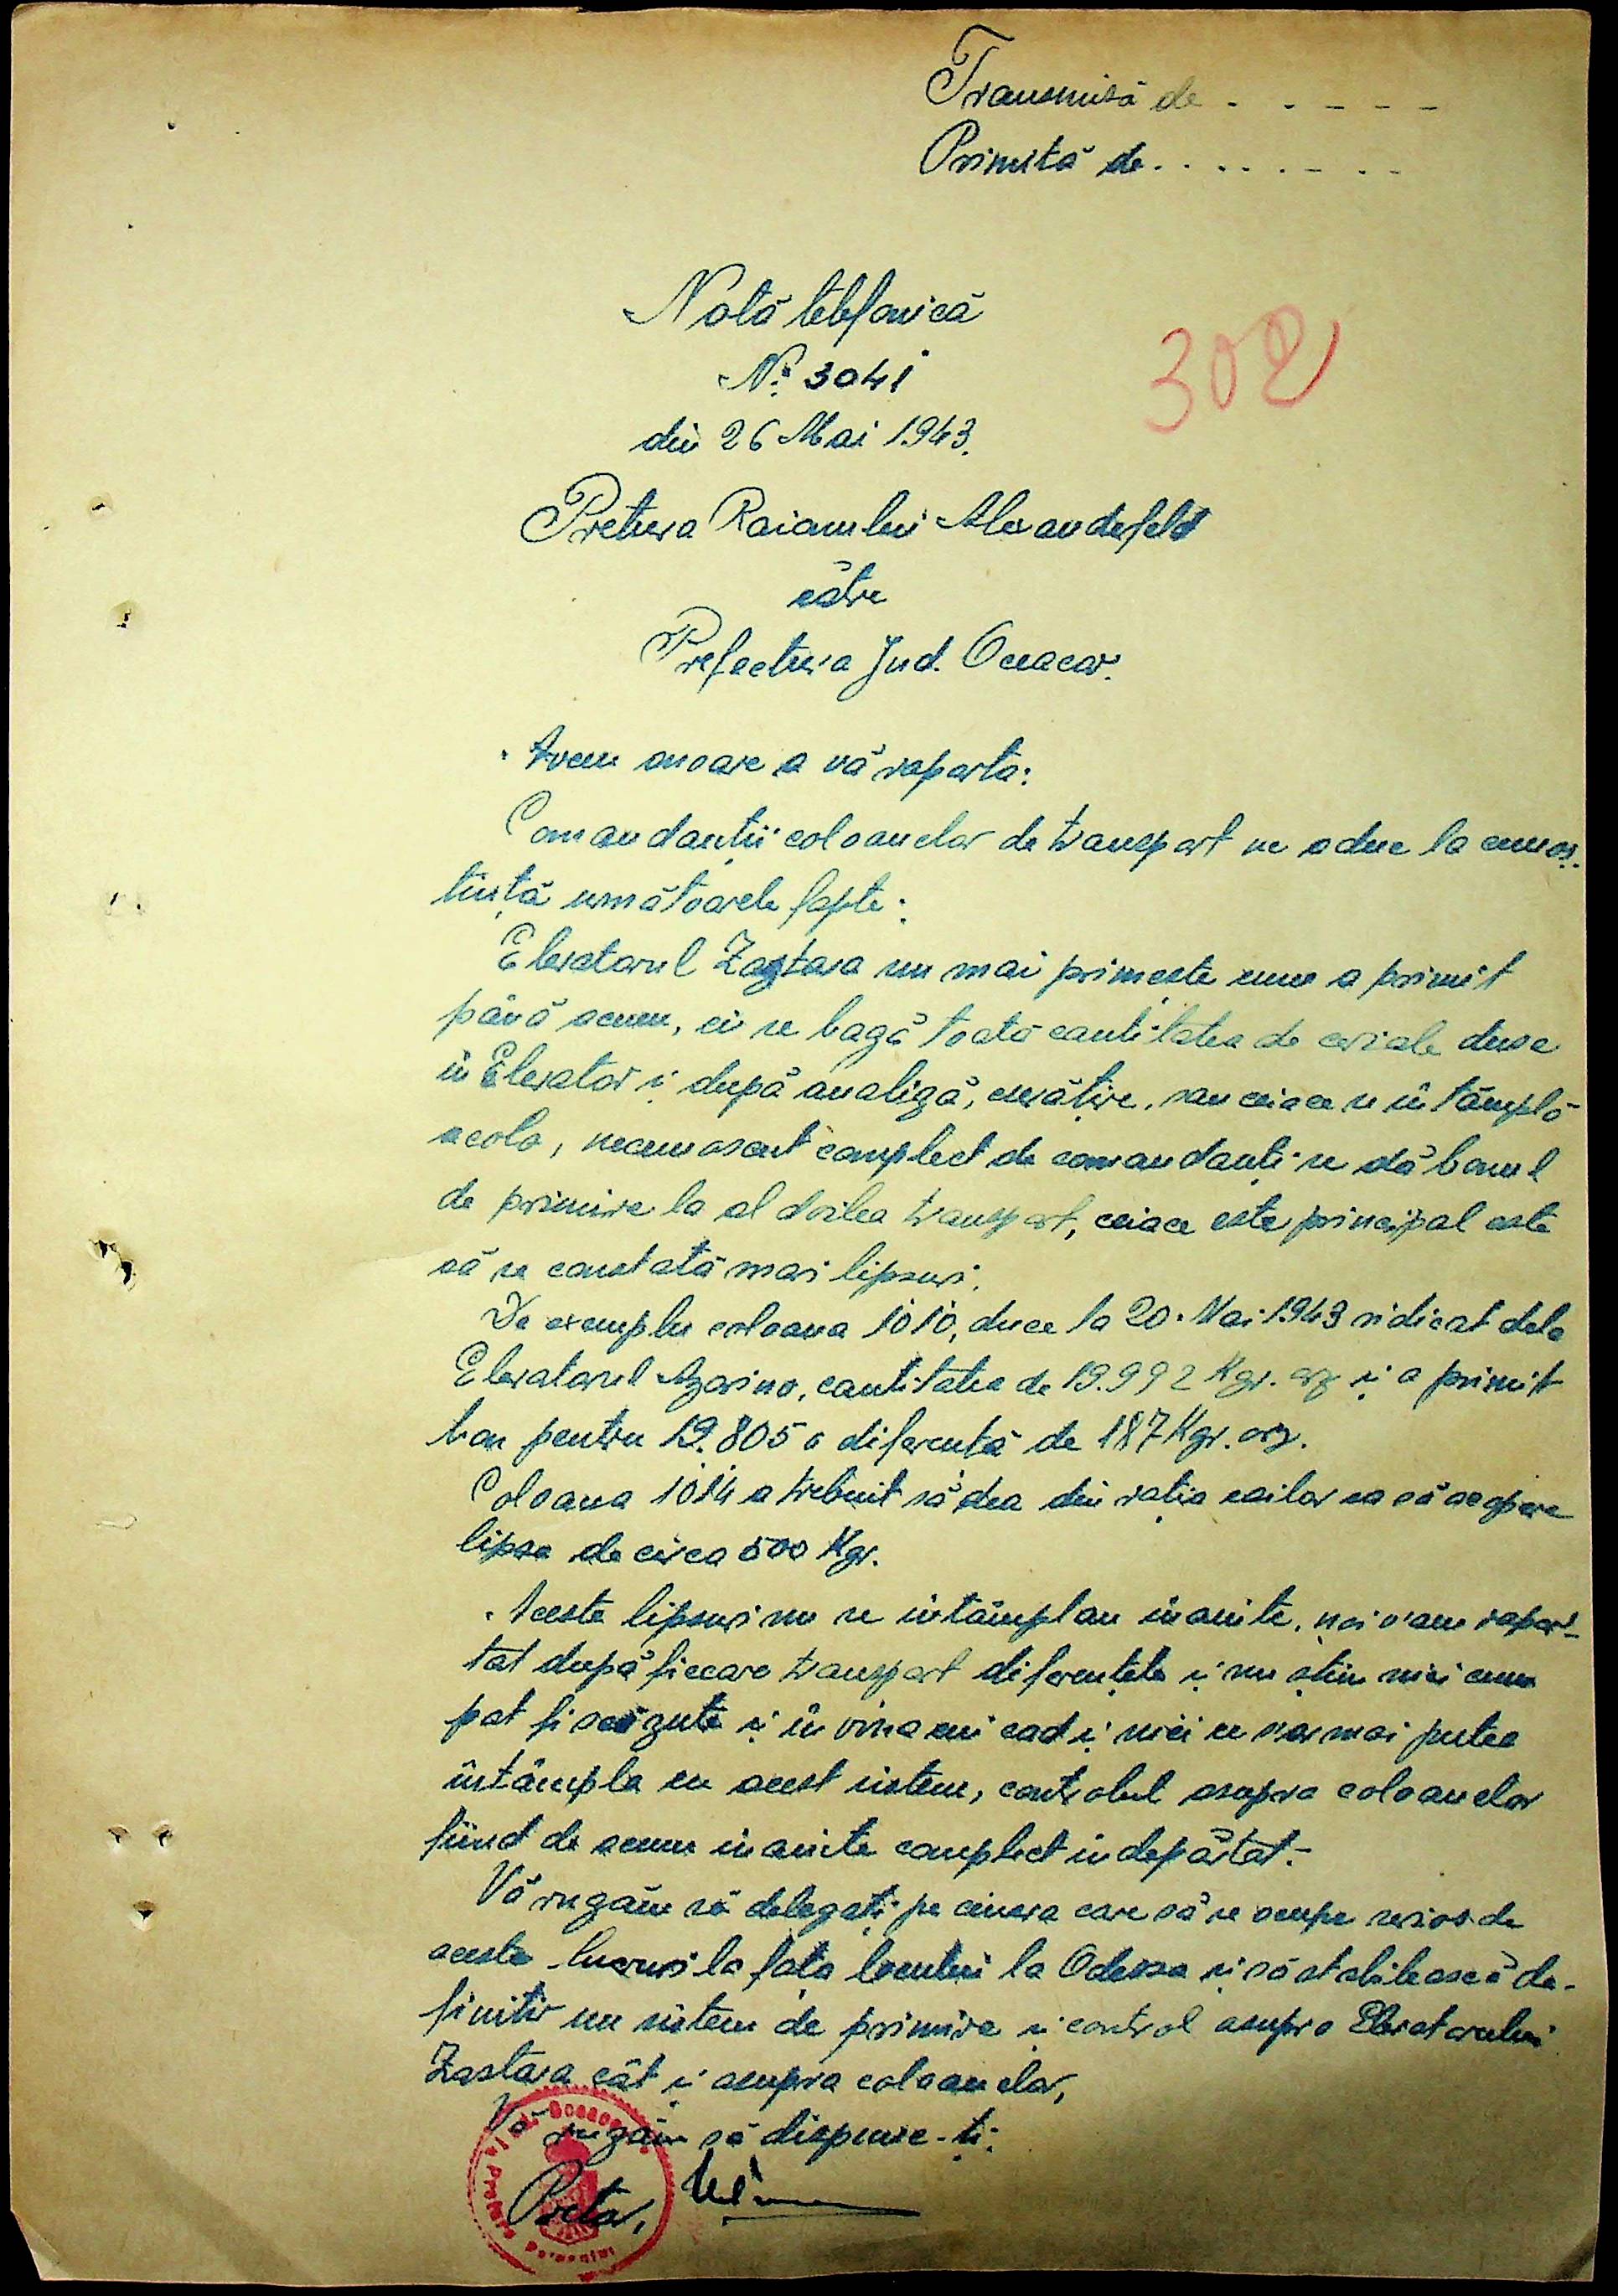 Transmisă de . . - - - -
Primită de . . . . . - . .
Notă telefonică
Nº. 3041
302
din 26 Mai 1943.
Pretura Raionului Alexandefeld
către
Prefectura Jud. Oceacov.
Avem onoare a vă raporta:
Comandanții coloanelor de transport ne aduc la cunoș-
tință următoarele fapte:
Elevatorul Zastava nu mai primește cum a primit
până acum, ci se bagă toată cantitatea de cereale duse
în Elevator și după analiză, curățire, sau ceiace se întâmplă
acolo, necunoscut complect de comandanți se dă bonul
de primire la al doilea transport, ceiace este principal este
că se constată mari lipsuri.
De exemplu coloana 1010, duce la 20. Mai 1943 ridicat dela
Elevatorul Azarino, cantitatea de 19.992 Kgr. orz și a primit
bon pentru 19.805 o diferență de 187 Kgr. orz.
Coloana 1014 a trebuit să dea din rația cailor ca să acopere
lipsa de circa 500 Kgr.
Aceste lipsuri nu se întâmplau înainte, noi v'am rapor-
tat după fiecare transport diferențele și nu știm nici cum
pot fi scăzute și în vina cui cad și nici ce s'ar mai putea
întâmpla cu acest sistem, controlul asupra coloanelor
fiind de acum înainte complect îndepărtat.
Vă rugăm să delegați pe cineva care să se ocupe serios de
aceste lucruri la fața locului la Odessa și să stabilească de-
finitiv un sistem de primire și control asupra Elevatorului
Zastava cât și asupra coloanelor,
Vă rugăm să dispune-ți:
Pretor,